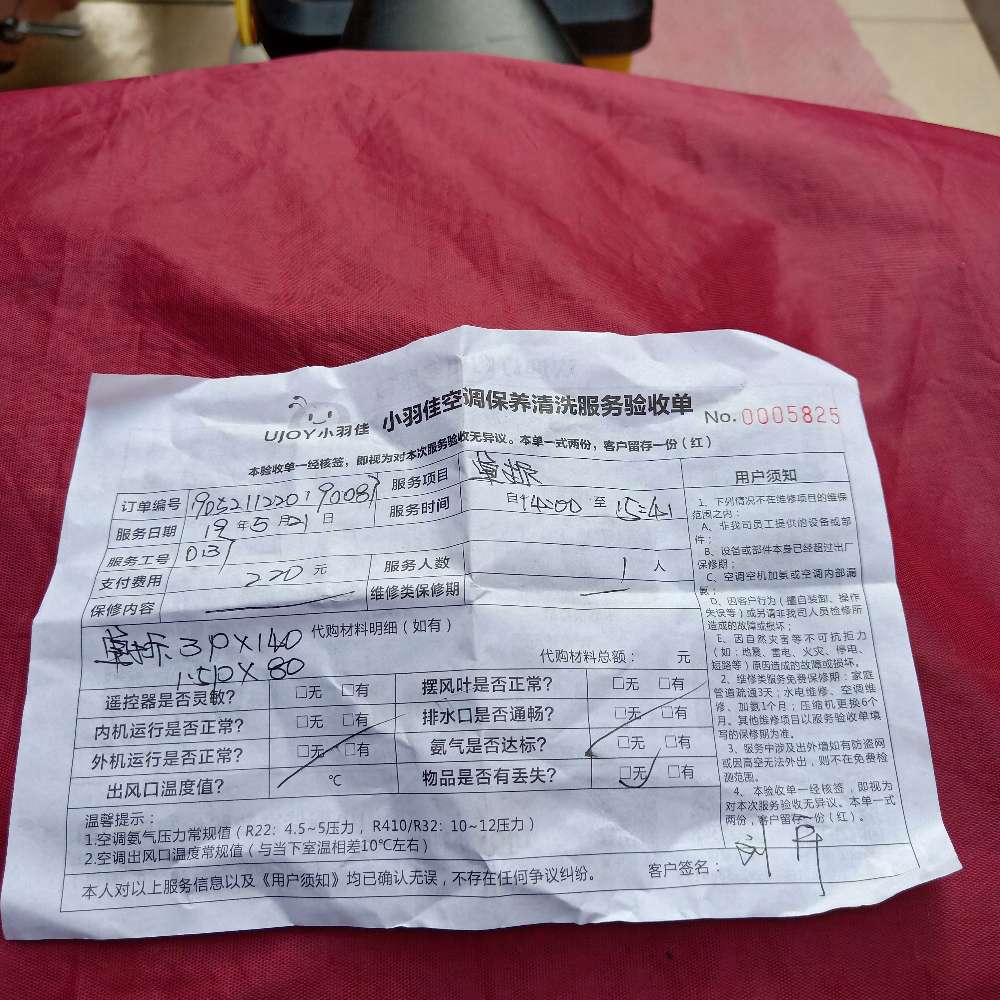 UJOY小羽佳
小羽佳空调保养清洗服务验收单
No.0005825
本验收单一经核签，即视为对本次服务验收无异议。本单一式两份，客户留存一份（红）
订单编号
服务项目 单拆
服务日期 19年5月21日
服务时间 自14:00至15:41
服务工号 0137
支付费用 220元
服务人数 1人
保修内容
维修类保修期
代购材料明细（如有）
单拆 3P×140
1.5P×80
代购材料总额： 元
遥控器是否灵敏？ □无 □有 摆风叶是否正常？ □无 □有
内机运行是否正常？ □无 □有 排水口是否通畅？ □无 □有
外机运行是否正常？ □无 □有 氨气是否达标？ □无 □有
出风口温度值？ ℃ 物品是否有丢失？ □无 □有
温馨提示：
1.空调氨气压力常规值（R22：4.5~5压力，R410/R32：10~12压力）
2.空调出风口温度常规值（与当下室温相差10℃左右）
本人对以上服务信息以及《用户须知》均已确认无误，不存在任何争议纠纷。
客户签名：
用户须知
1、下列情况不在维修项目的维保
范围之内：
A、非我司员工提供的设备或部
件；
B、设备或部件本身已经超过出厂
保修期；
C、空调空机加氨或空调内部漏
氨；
D、因客户行为（擅自装卸、操作
失误等）或另请非我司人员检修所
造成的故障或损坏；
E、因自然灾害等不可抗拒力
（如：地震、雷电、火灾、停电、
短路等）原因造成的故障或损坏。
2、维修类服务免费保修期：家庭
管道疏通3天；水电维修、空调维
修、加氨1个月；压缩机更换6个
月。其他维修项目以服务验收单填
写的保修期为准。
3、服务中涉及出外增如有防盗网
或因高空无法外出，则不在免费检
测范围。
4、本验收单一经核签，即视为
对本次服务验收无异议。本单一式
两份，客户留存一份（红）。